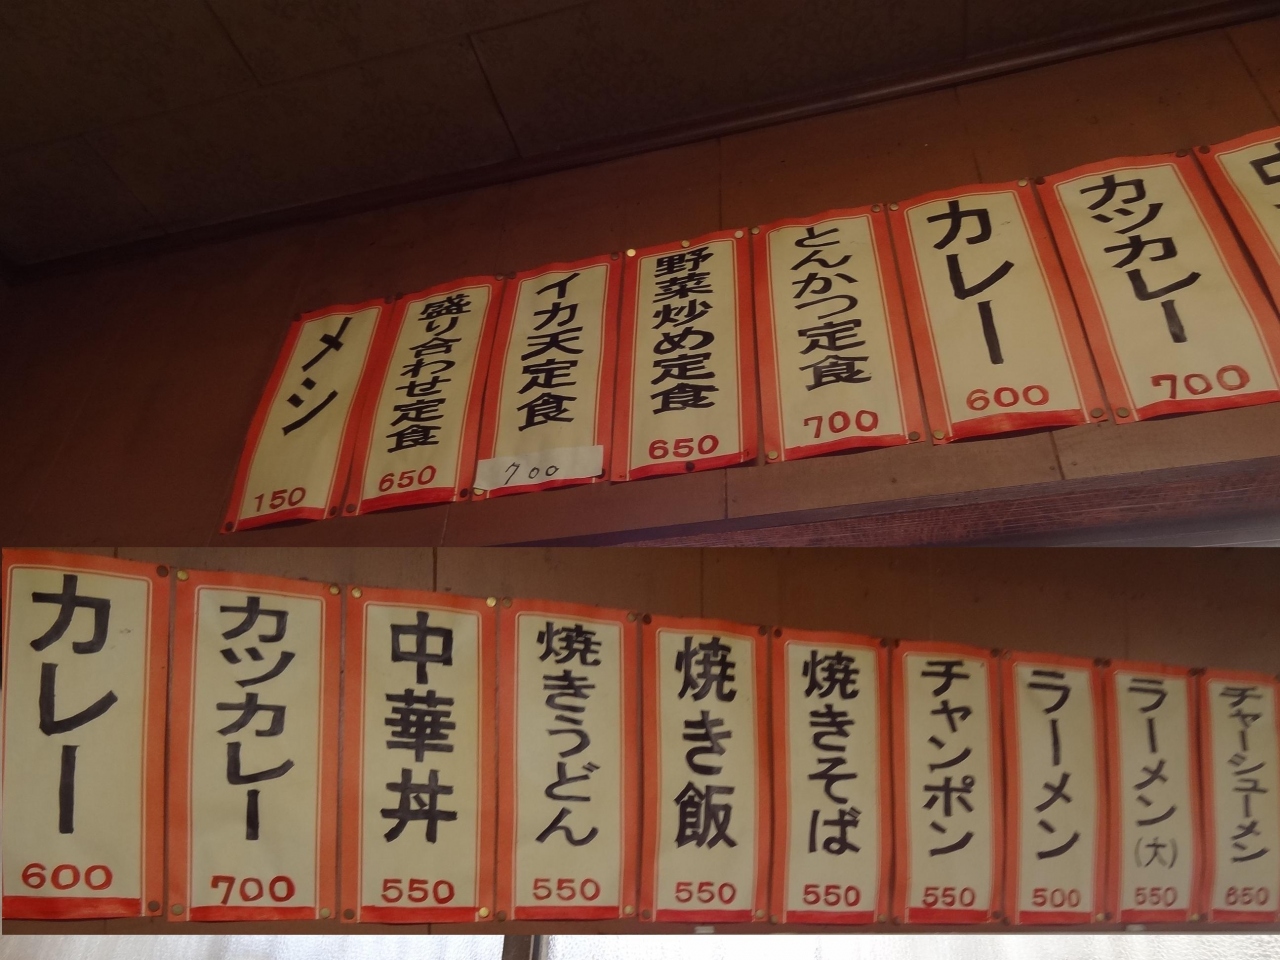 メシ
150
盛り合わせ定食
650
イカ天定食
700
野菜炒め定食
650
とんかつ定食
700
カレー
600
カツカレー
700
中
カレー
600
カツカレー
700
中華丼
550
焼きうどん
550
焼き飯
550
焼きそば
550
チャンポン
550
ラーメン
500
ラーメン(大)
550
チャーシューメン
650